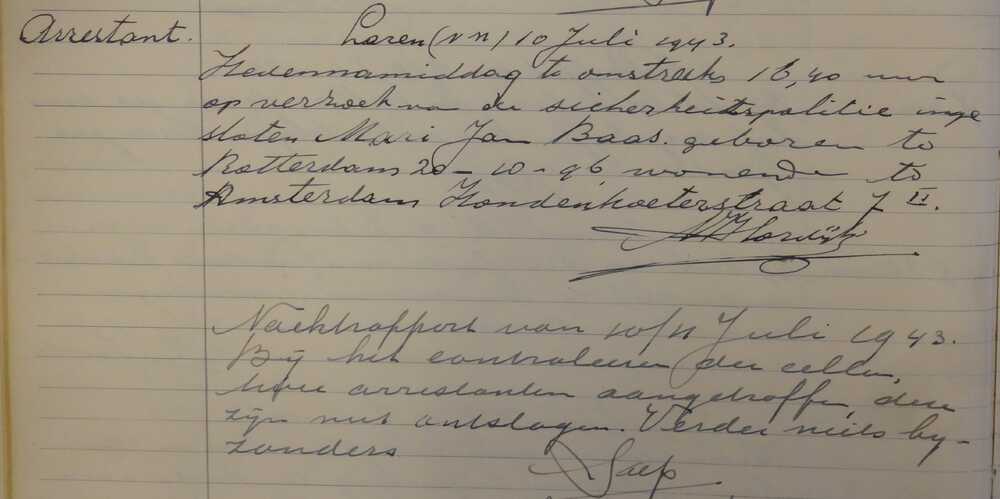 Arrestant.
Laren (N H) 10 Juli 1943.
Hedennamiddag te omstreeks 16,40 uur
op verzoek van de sicherheitspolitie inge
sloten Mari Jan Baas. geboren te
Rotterdam 20-10-96, wonende te
Amsterdam Hondenkoeterstraat 7 II.
Nachtrapport van 10/11 Juli 1943.
Bij het controleeren der cellen,
twee arrestanten aangetroffen, deze
zijn niet ontslagen. Verder niets by-
zonders